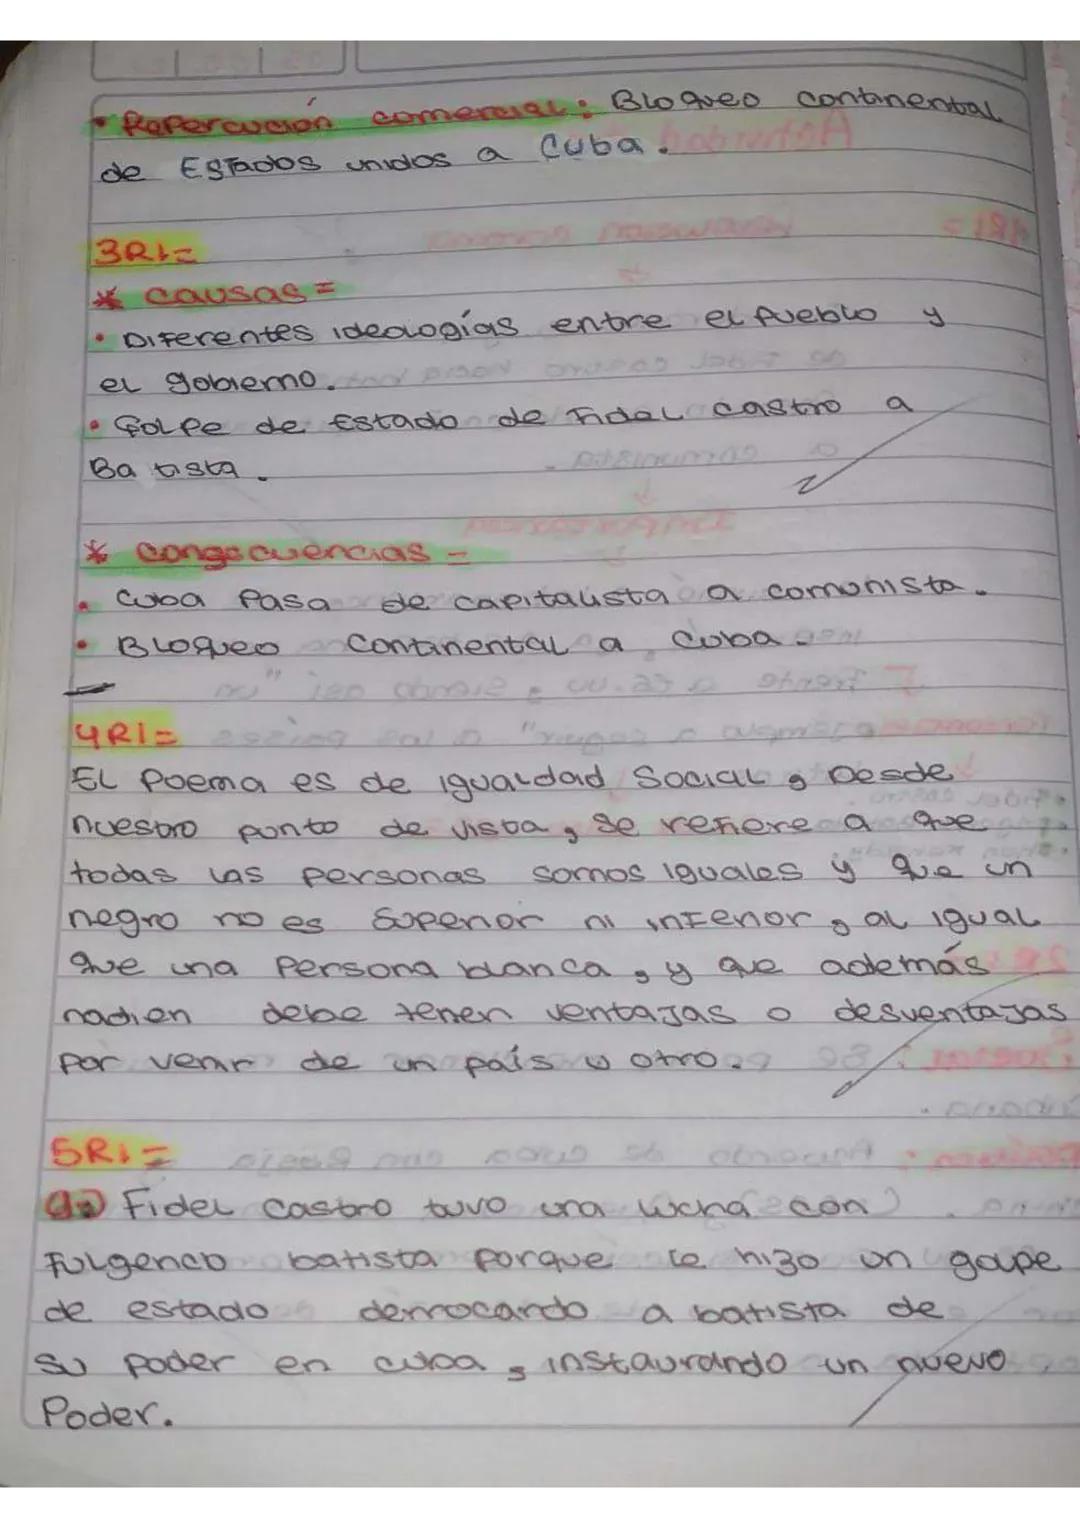 • Repercución comercial: Bloqueo continental
de Estados unidos a Cuba.
3R1=
* causas=
• Diferentes ideologías entre el pueblo y
el gobierno.
• Golpe de Estado de Fidel castro a
Batista.
* congecuencias=
• Cuba Pasa de capitalista a comunista.
• Bloqueo Continental a Cuba.
4R1=
EL Poema es de igualdad Social, Desde
nuestro punto de vista, se refiere a que
todas las personas somos iguales y que un
negro no es Superior ni inferior, al igual
que una Persona blanca, y que además
nadien debe tener ventajas o desventajas
por venir de un país u otro.
5R1=
a.) Fidel castro tuvo una lucha con
Fulgencio batista porque le hizo un golpe
de estado derrocando a batista de
su poder en cuba, instaurando un nuevo
Poder.